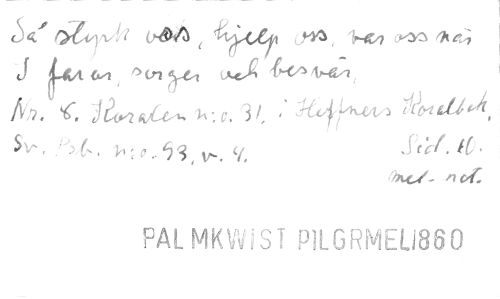 Så styrk oss, hjelp oss, var oss när
I faror, sorger och besvär,
Nr. 8. Koralen n:o. 31, i Hæffners Koralbok,
Sv. Psb. n:o. 93, v. 4.
Sid. 10.
med. not.
PALMKWIST PILGRMEL1860